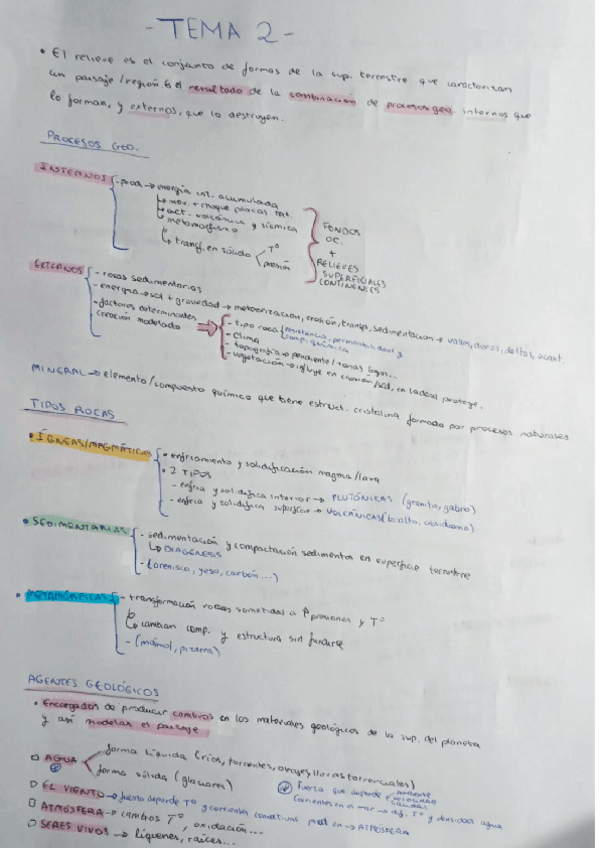 - TEMA 2 -
• El relieve es el conjunto de formas de la sup. terrestre que caracterizan
un paisaje/región. Es el resultado de la combinación de procesos geo. internos que
lo forman, y externos, que lo destruyen.
PROCESOS GEO.
INTERNOS - prod. → energía int. acumulada
↳ mov. + choque placas tect.
↳ act. volcánica y sísmica
↳ metamorfismo
↳ transf. en sólido < Tº
presión
FONDOS
OC.
+
RELIEVES
SUPERFICIALES
CONTINENTES
EXTERNOS - rocas sedimentarias
- energía → sol + gravedad → meteorización, erosión, transp, sedimentación → valles, dunas, deltas, acant.
- factores determinantes
creación modelado ⇒ - tipo roca { resistencia, permeabilidad y
comp. química
- clima
- topografía → pendiente / zonas bajas...
- vegetación → influye en erosión/sed, en ladera protege.
MINERAL → elemento/compuesto químico que tiene estruct. cristalina formado por procesos naturales
TIPOS ROCAS
• ÍGNEAS/MAGMÁTICAS • enfriamiento y solidificación magma/lava
• 2 TIPOS
- enfría y solidifica interior → PLUTÓNICAS (granito, gabro)
- enfría y solidifica superficie → VOLCÁNICAS (basalto, obsidiana)
• SEDIMENTARIAS - sedimentación y compactación sedimentos en superficie terrestre
↳ DIAGÉNESIS
- (arenisca, yeso, carbón...)
• METAMÓRFICAS - transformación rocas sometidas a ↑ presiones y Tº
↳ cambian comp. y estructura sin fundirse
- (mármol, pizarra)
AGENTES GEOLÓGICOS
• Encargados de producir cambios en los materiales geológicos de la sup. del planeta
y así modelar el paisaje
□ AGUA < forma líquida (ríos, torrentes, oleajes, lluvias torrenciales)
forma sólida (glaciares)
fuerza que depende pendiente
Corrientes en el mar → dif. Tº y densidad agua
□ EL VIENTO → fuerza depende Tº y corrientes → ATMÓSFERA
□ ATMÓSFERA → cambios Tº, oxidación...
□ SERES VIVOS → líquenes, raíces...